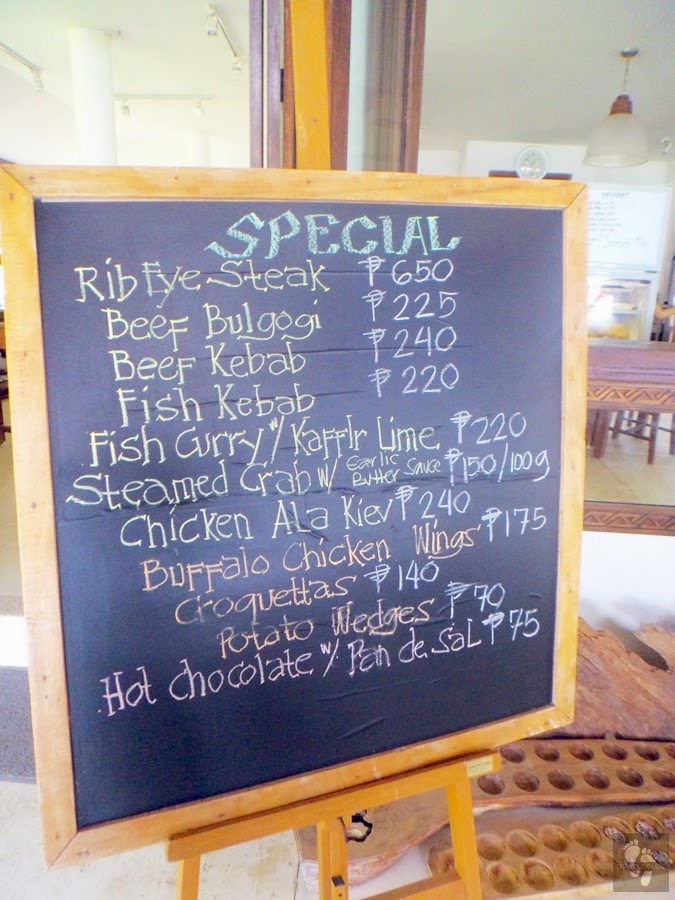 SPECIAL
Rib Eye Steak ₱650
Beef Bulgogi ₱225
Beef Kebab ₱240
Fish Kebab ₱220
Fish Curry w/ Kaffir Lime ₱220
Steamed Crab w/ Garlic Butter Sauce ₱150/100g
Chicken Ala Kiev ₱240
Buffalo Chicken Wings ₱175
Croquettas ₱140
Potato Wedges ₱70
Hot Chocolate w/ Pan de Sal ₱75
DESSERT